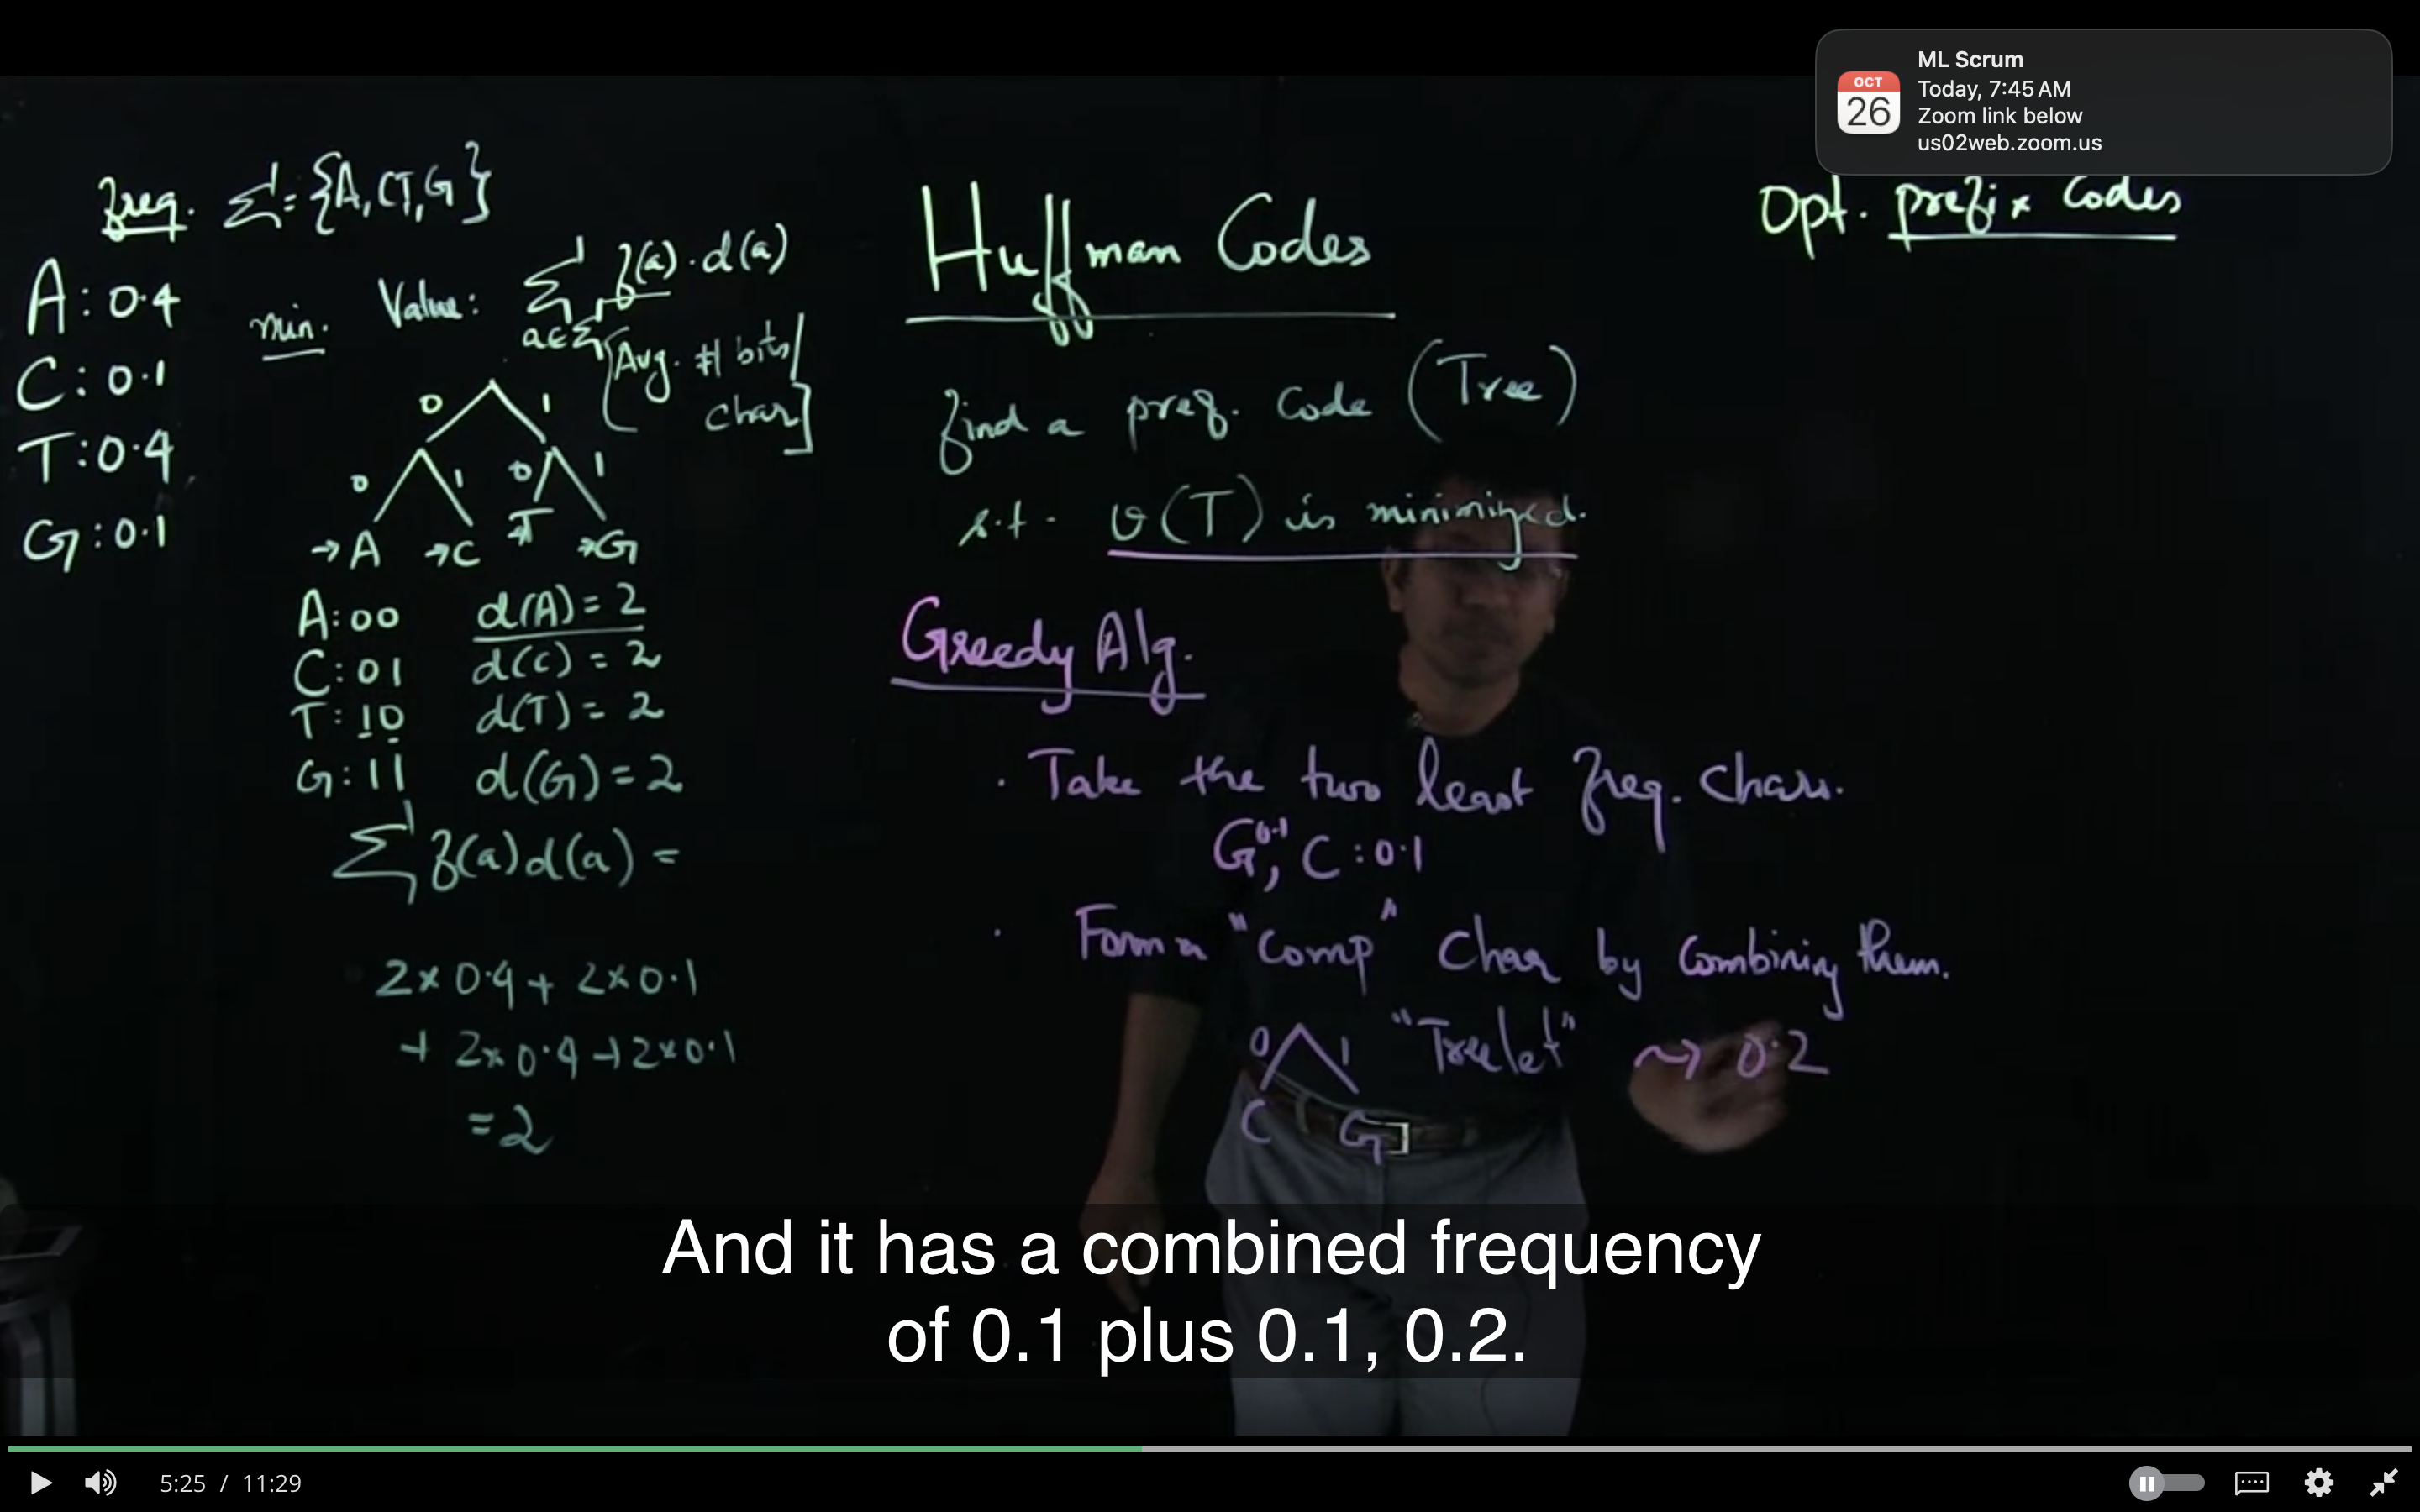 ML Scrum
OCT
26
Today, 7:45 AM
Zoom link below
us02web.zoom.us
freq. Σ = {A, C, T, G}
A: 0.4
C: 0.1
T: 0.4
G: 0.1
min. Value: Σ f(a) · d(a)
a∈Σ
[Avg. # bits/
char]
0 1
0 1 0 1
→A →C →T →G
A: 00 d(A) = 2
C: 01 d(C) = 2
T: 10 d(T) = 2
G: 11 d(G) = 2
Σ f(a) d(a) =
2 × 0.4 + 2 × 0.1
+ 2 × 0.4 + 2 × 0.1
= 2
Huffman Codes
find a pref. Code (Tree)
s.t. v(T) is minimized.
Greedy Alg.
· Take the two least freq. Chars.
G 0.1, C : 0.1
· Form a "Comp" Char by Combining them.
0 1 "Treelet" ⇝ 0.2
C G
Opt. prefix Codes
And it has a combined frequency
of 0.1 plus 0.1, 0.2.
5:25 / 11:29